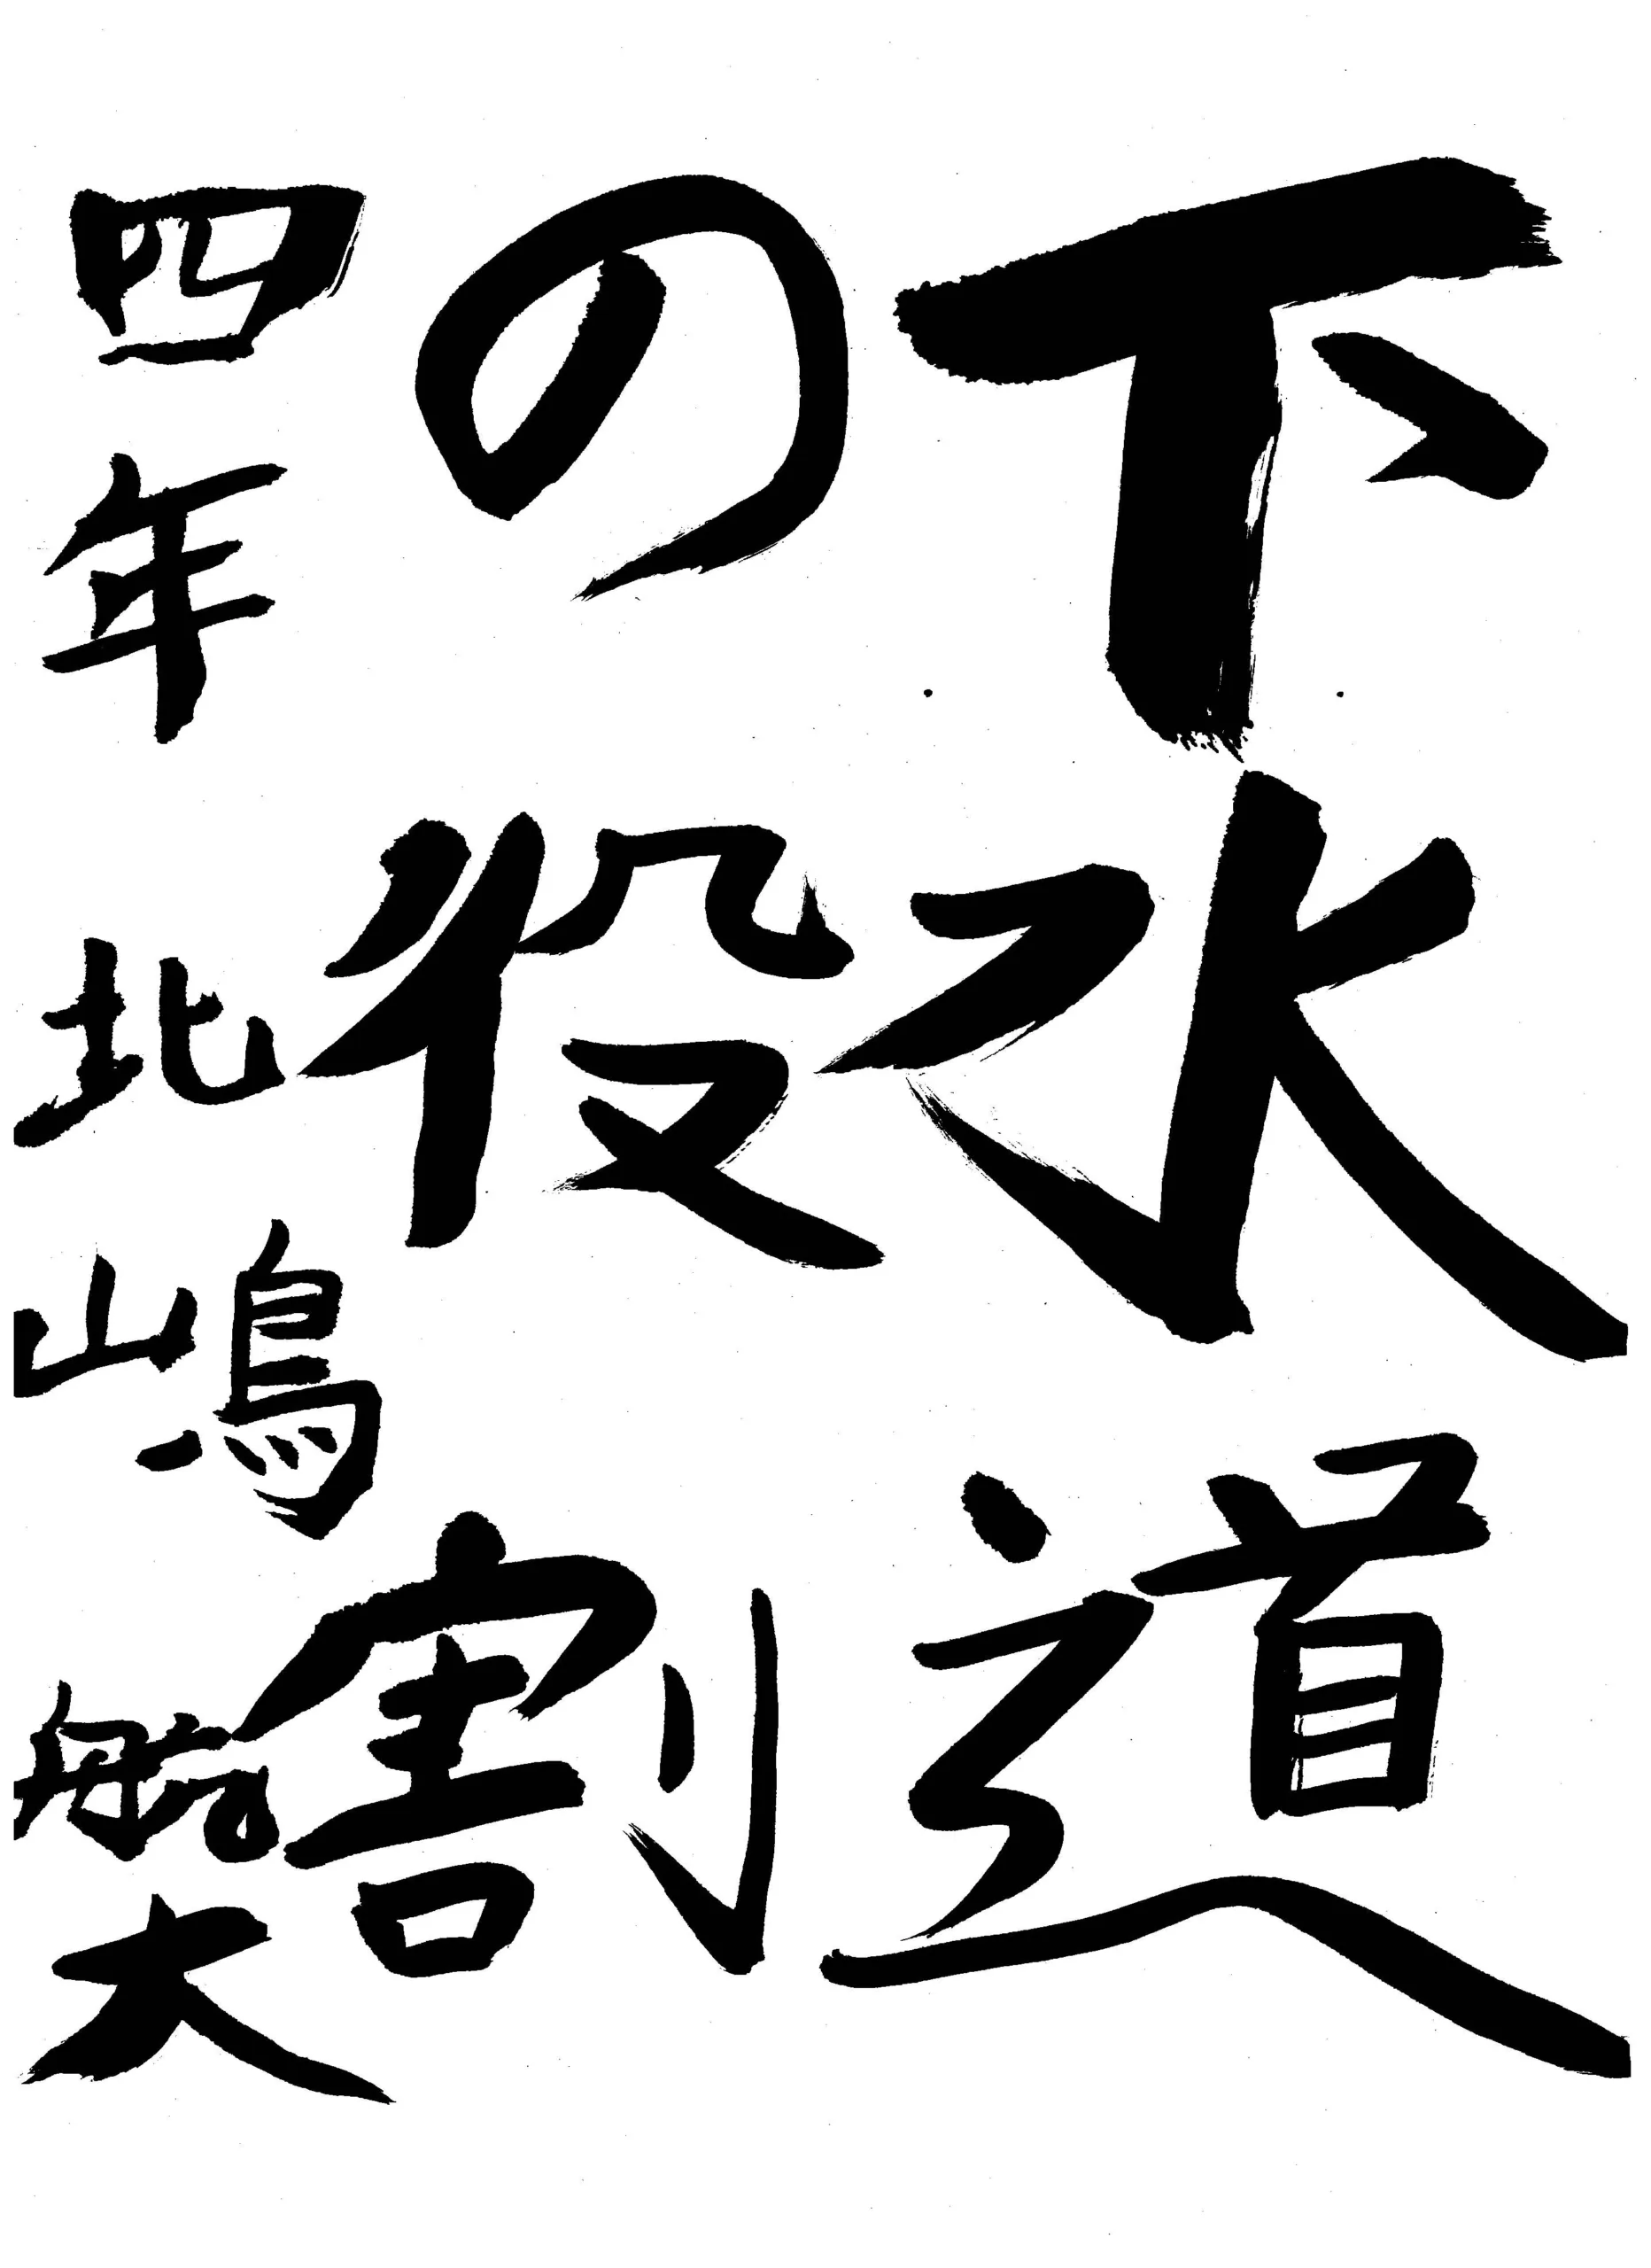 下水道
の役割
四年 北嶋 大